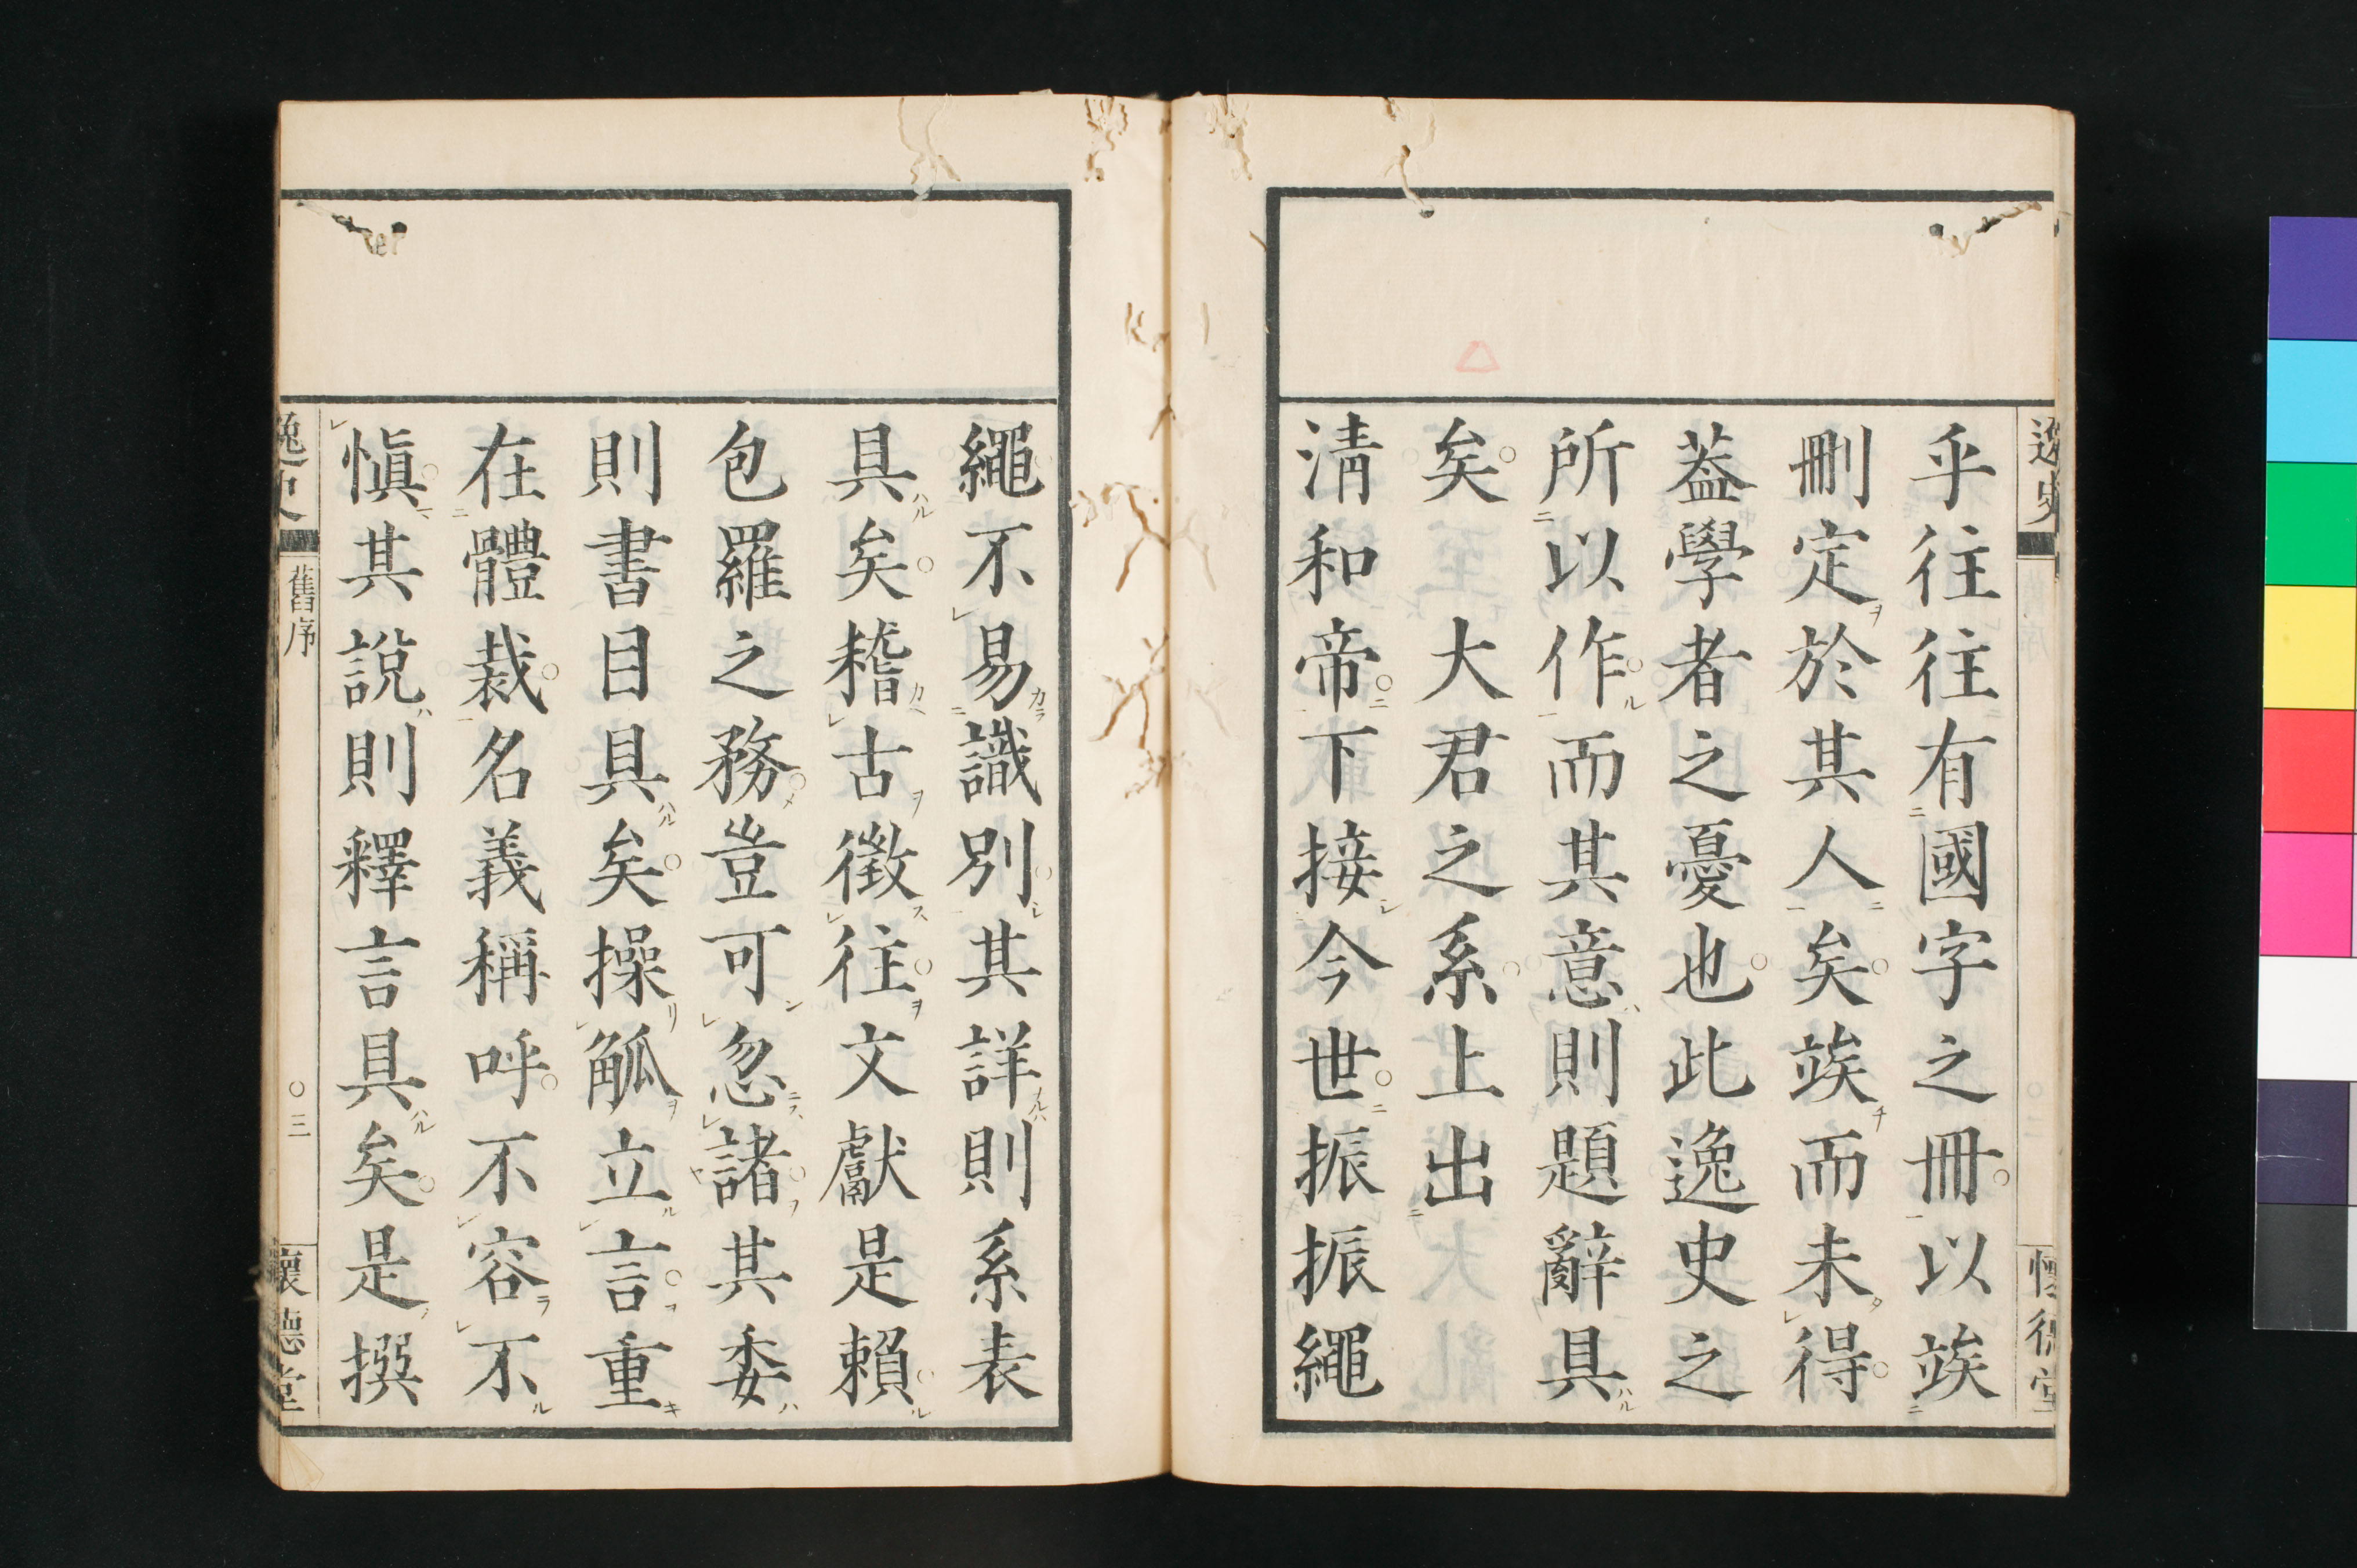 逸史
懷德堂
乎往往有國字之冊以竢
刪定於其人矣竢而未得
葢學者之憂也此逸史之
所以作而其意則題辭具
矣　大君之系上出
淸和帝下接今世振振繩
繩不易識別其詳則系表
具矣稽古徵往文獻是賴
包羅之務豈可忽諸其委
則書目具矣操觚立言重
在體裁名義稱呼不容不
愼其說則釋言具矣是撰
逸史
舊序
三
懷德堂